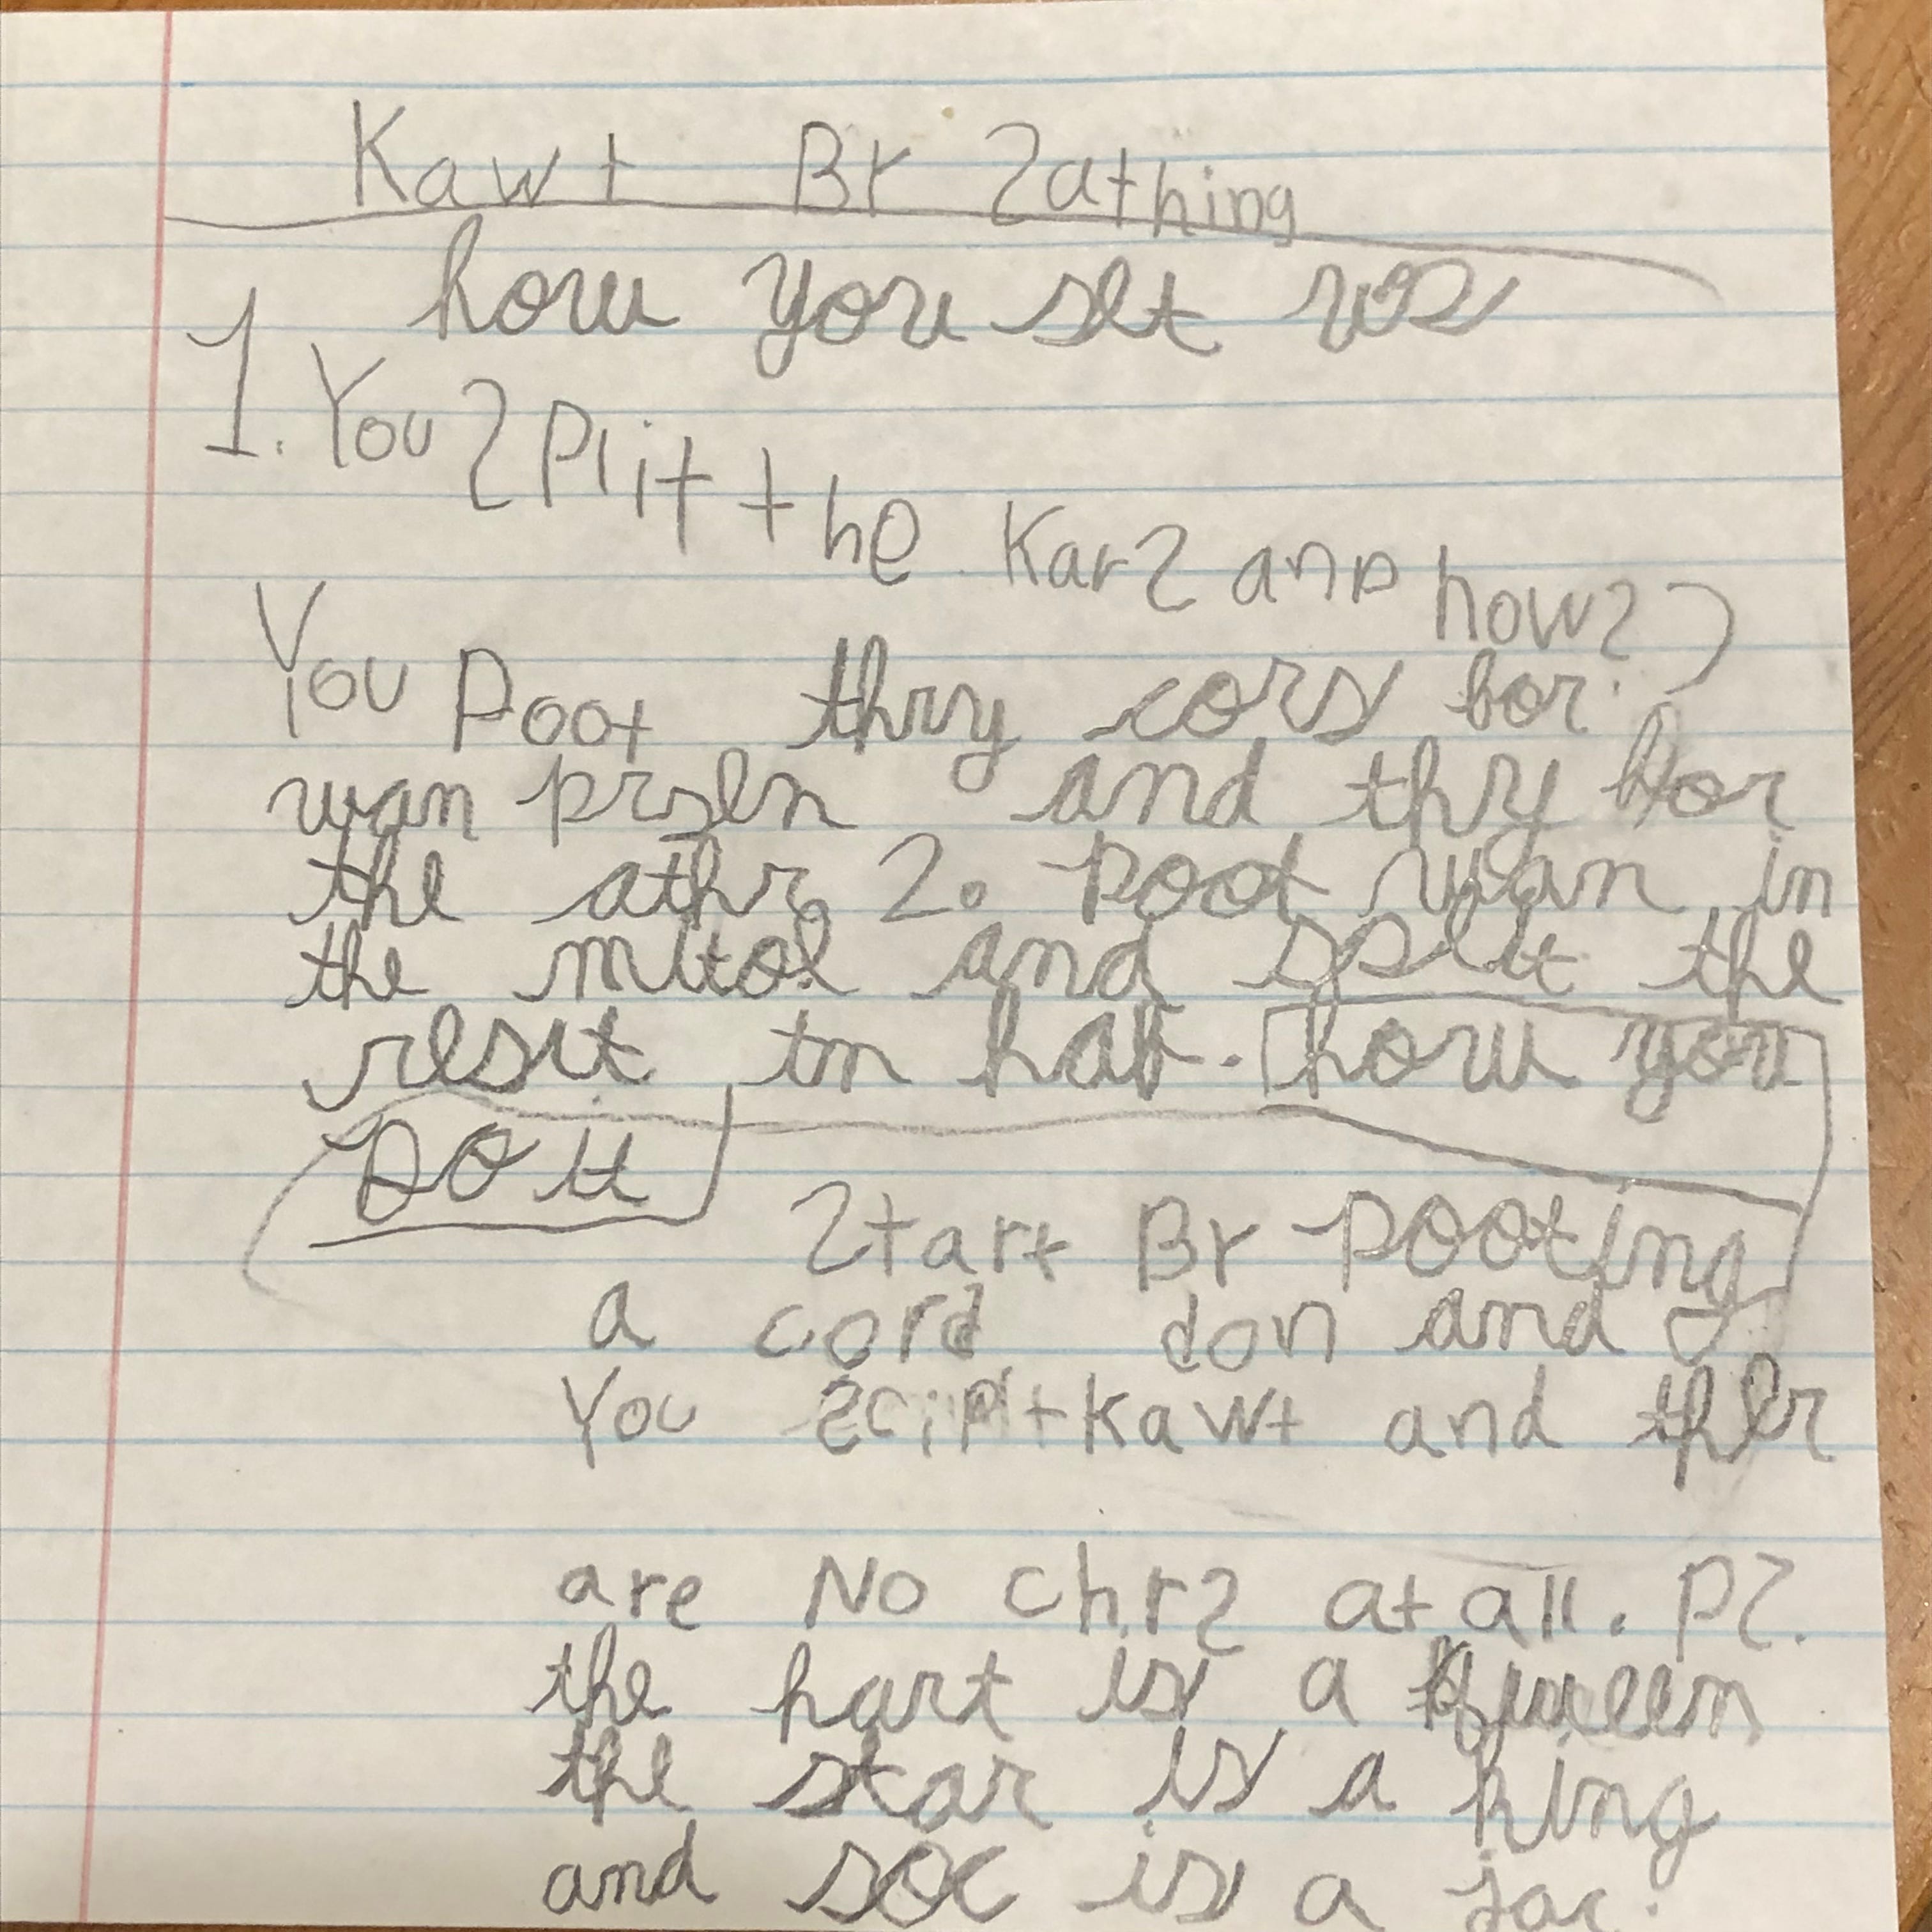 Kawt By Sathing
how you set up
1. You Split the Kars and how?
You Poot thry cors for
wan prsen and thy for
the athr 2. poot wan in
the mitol and split the
resit in haf. how you
Do it
Start By pooting
a cord don and
You Kawt and ther
are No chrs at all. PS.
the hart is a queen
the star is a king
and soc is a jac.